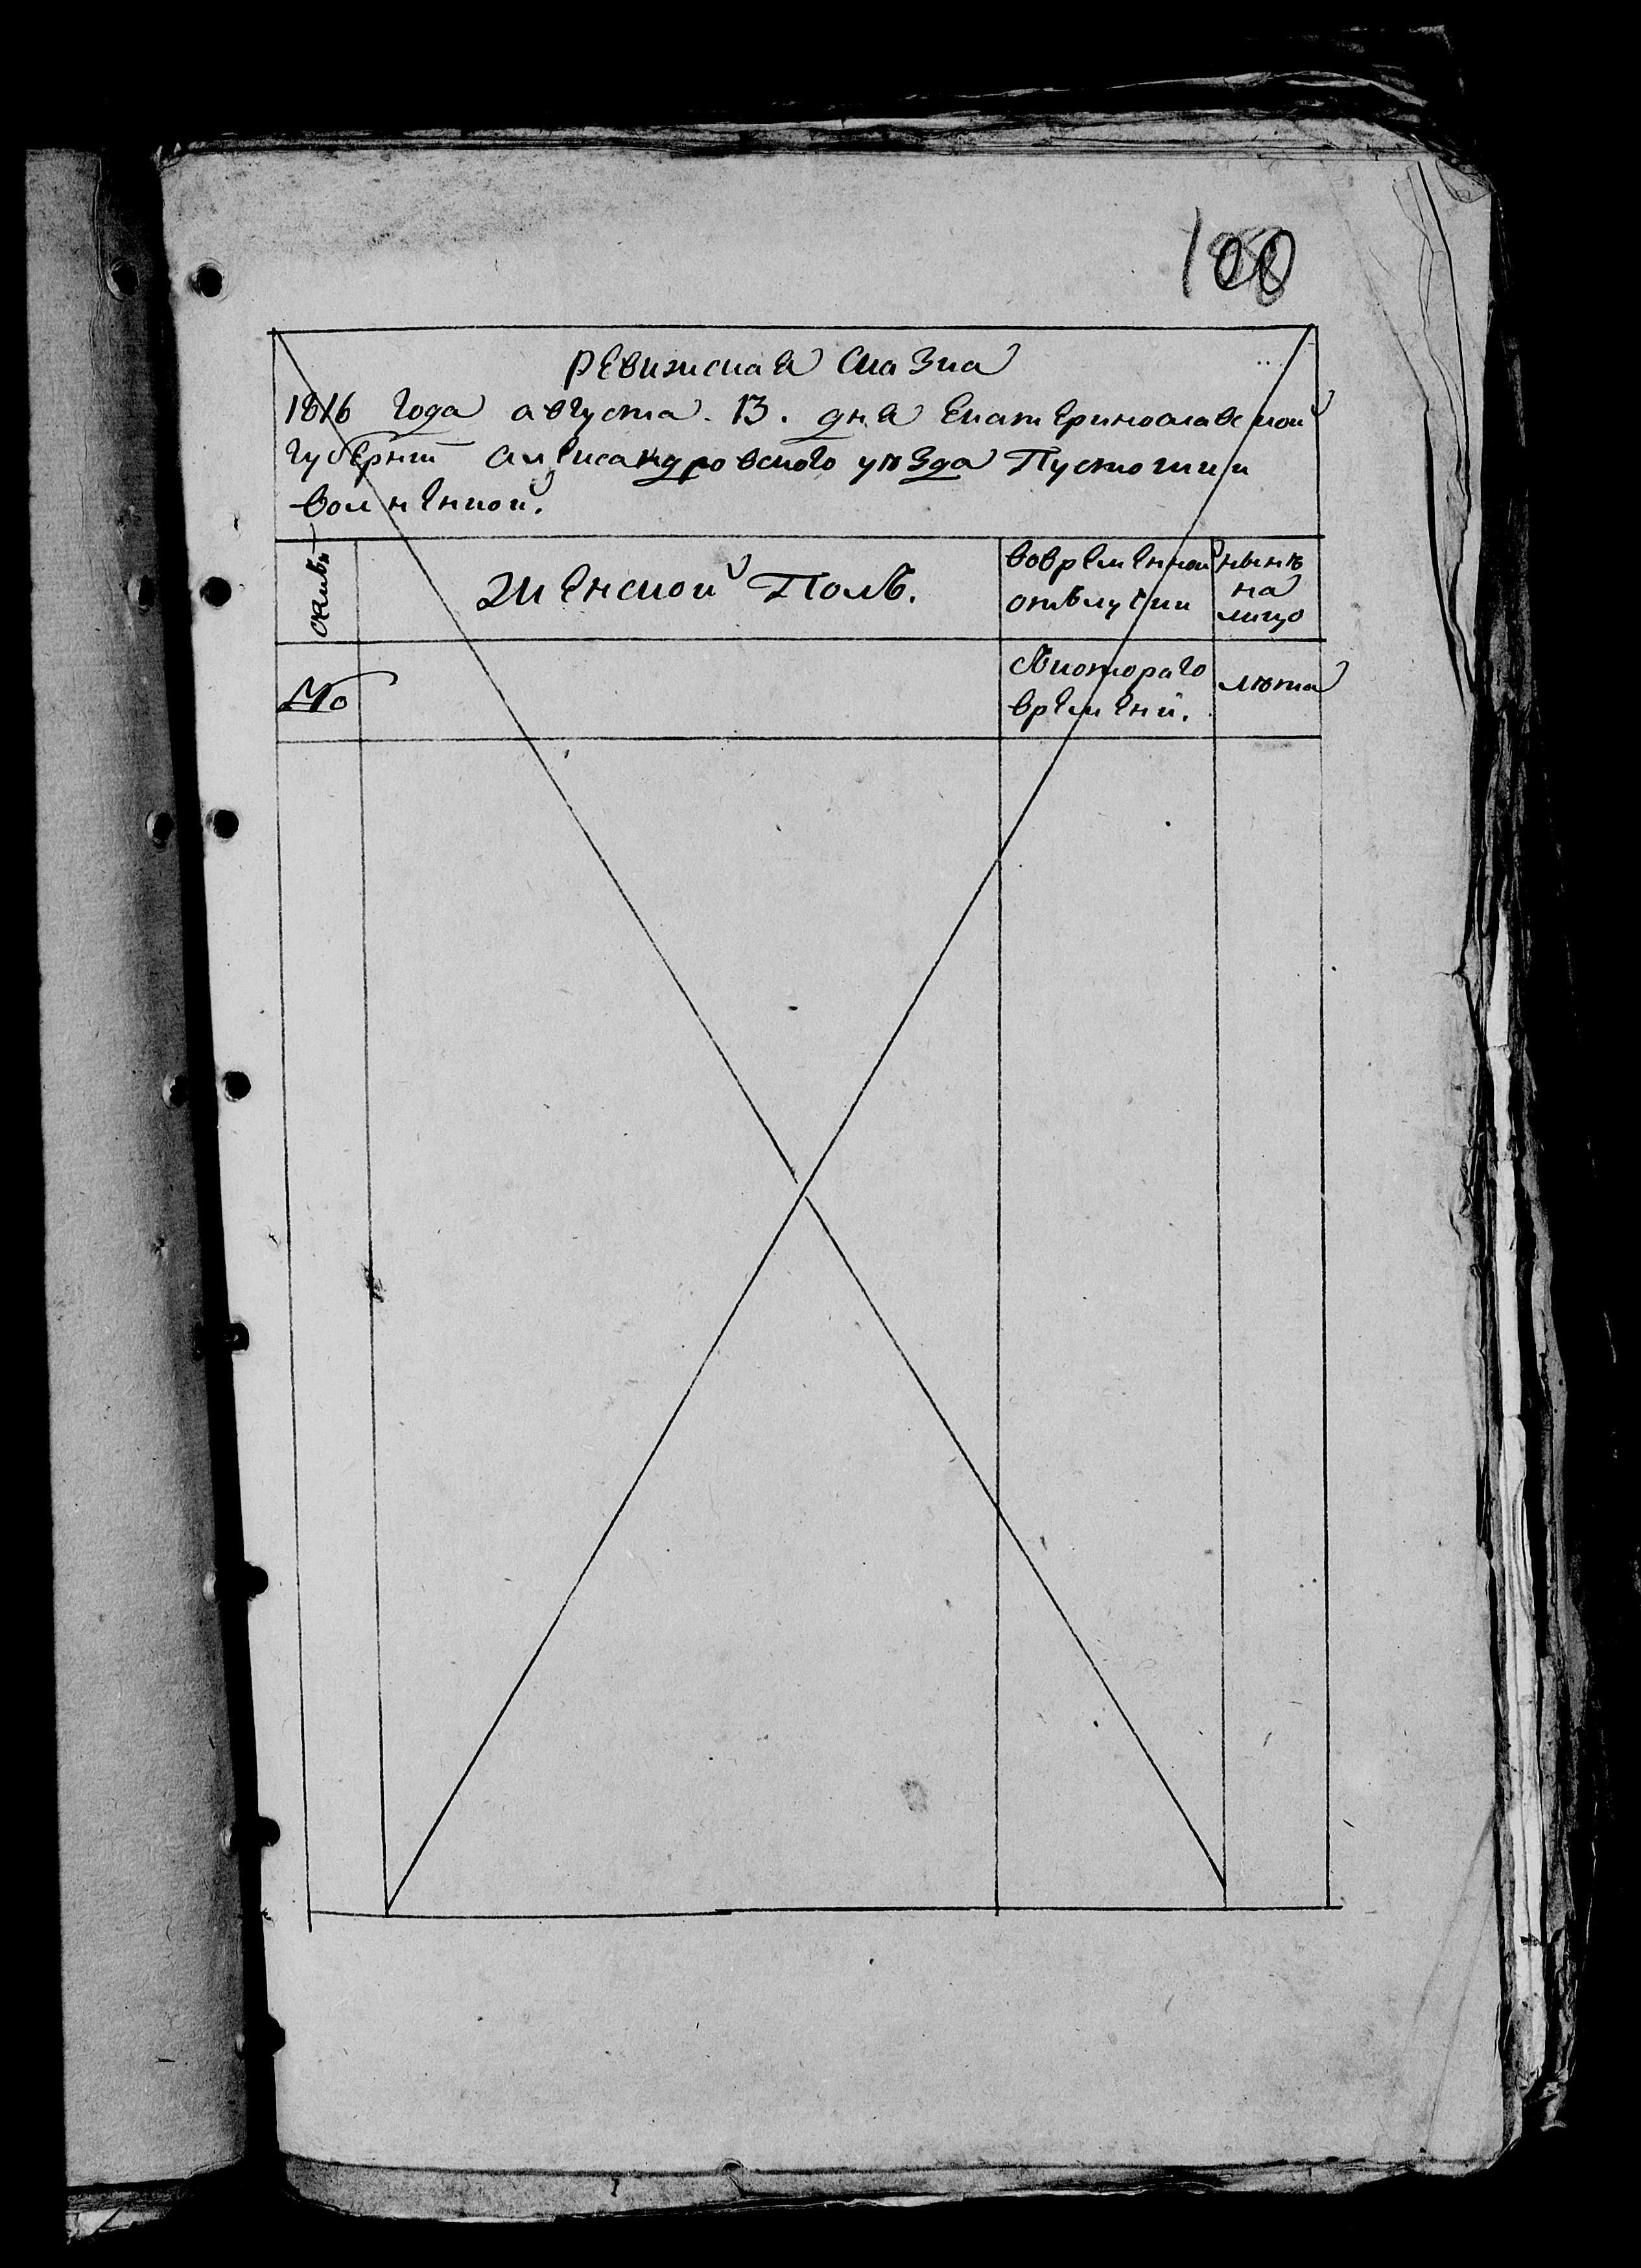 100
ревижская сказка
1816 года августа 13. дня Екатеринославской
губерніи александровского уѣзда Пустошки
волненкой.
семьи
женской Полъ.
вовременной
отълучки
нынѣ
на
лицо
№
съкотораго
времени.
лѣта